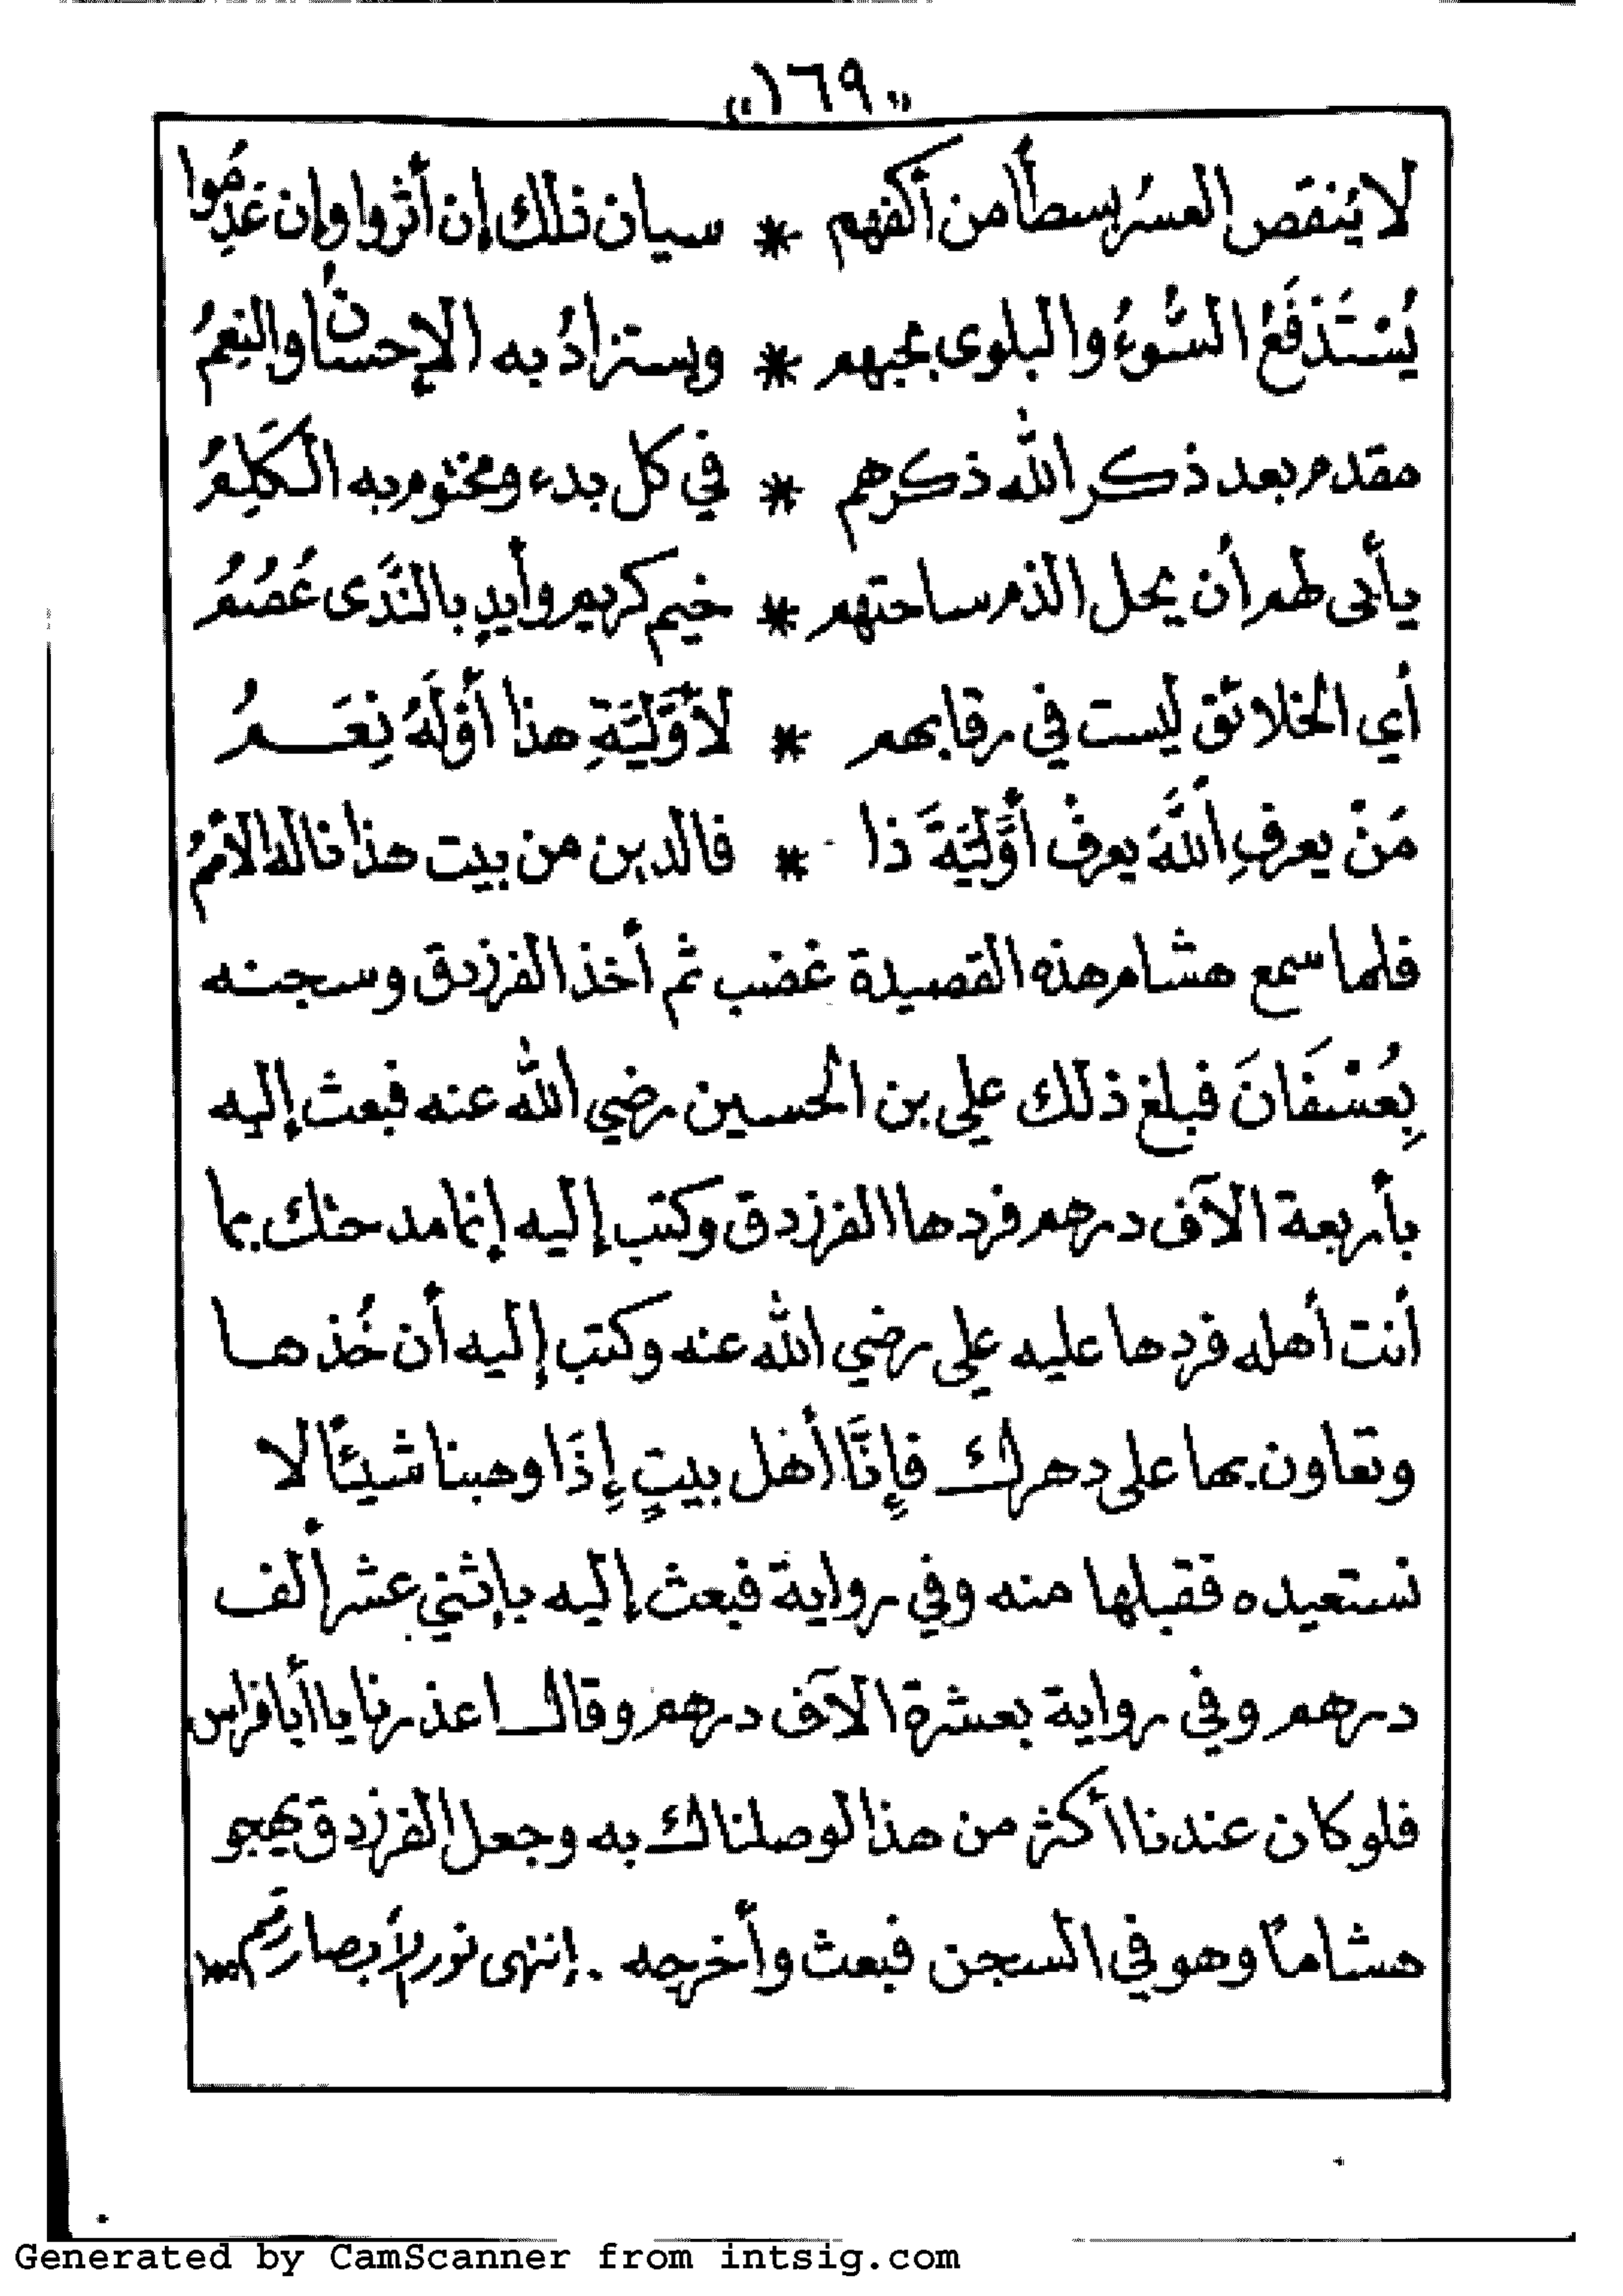 «١٦٩»
لا يُنقص العسرُ بسطاً من أكفهم * سيان ذلك إن أثروا وإن عَدِمُوا
يُسْتَدْفَعُ السُّوءُ والبلوى بحبهم * ويستزادُ به الإحسانُ والنِعمُ
مقدم بعد ذكر الله ذكرهم * في كل بدء ومختوم به الكَلِمُ
يأبى لهم أن يحل الذم ساحتهم * خيم كريم وأيدٍ بالنَّدَى عُصُمُ
أي الخلائق ليست في رقابهم * لأَوَّلِيَّةِ هذا أَوْلَهُ نِعَــمُ
مَنْ يعرفِ اللَّهَ يعرفْ أَوَّلِيَّةَ ذا * فالدين من بيت هذا ناله الأممُ
فلما سمع هشام هذه القصيدة غضب ثم أخذ الفرزدق وسجنه
بِعُسْفَانَ فبلغ ذلك علي بن الحسين رضي الله عنه فبعث إليه
بأربعة الآف درهم فردها الفرزدق وكتب إليه إنما مدحتك بما
أنت أهله فردها عليه علي رضي الله عنه وكتب إليه أن خُذها
وتعاون بها على دهرك فإِنَّا أهل بيتٍ إِذَا وهبنا شيئًا لا
نستعيده فقبلها منه وفي رواية فبعث إليه بإثني عشر ألف
درهم وفي رواية بعشرة الآف درهم وقال اعذرنا يا أبا فراس
فلو كان عندنا أكثر من هذا لوصلناك به وجعل الفرزدق يهجو
هشاماً وهو في السجن فبعث وأخرجه . إنتهى نور الأبصار رقم
Generated by CamScanner from intsig.com